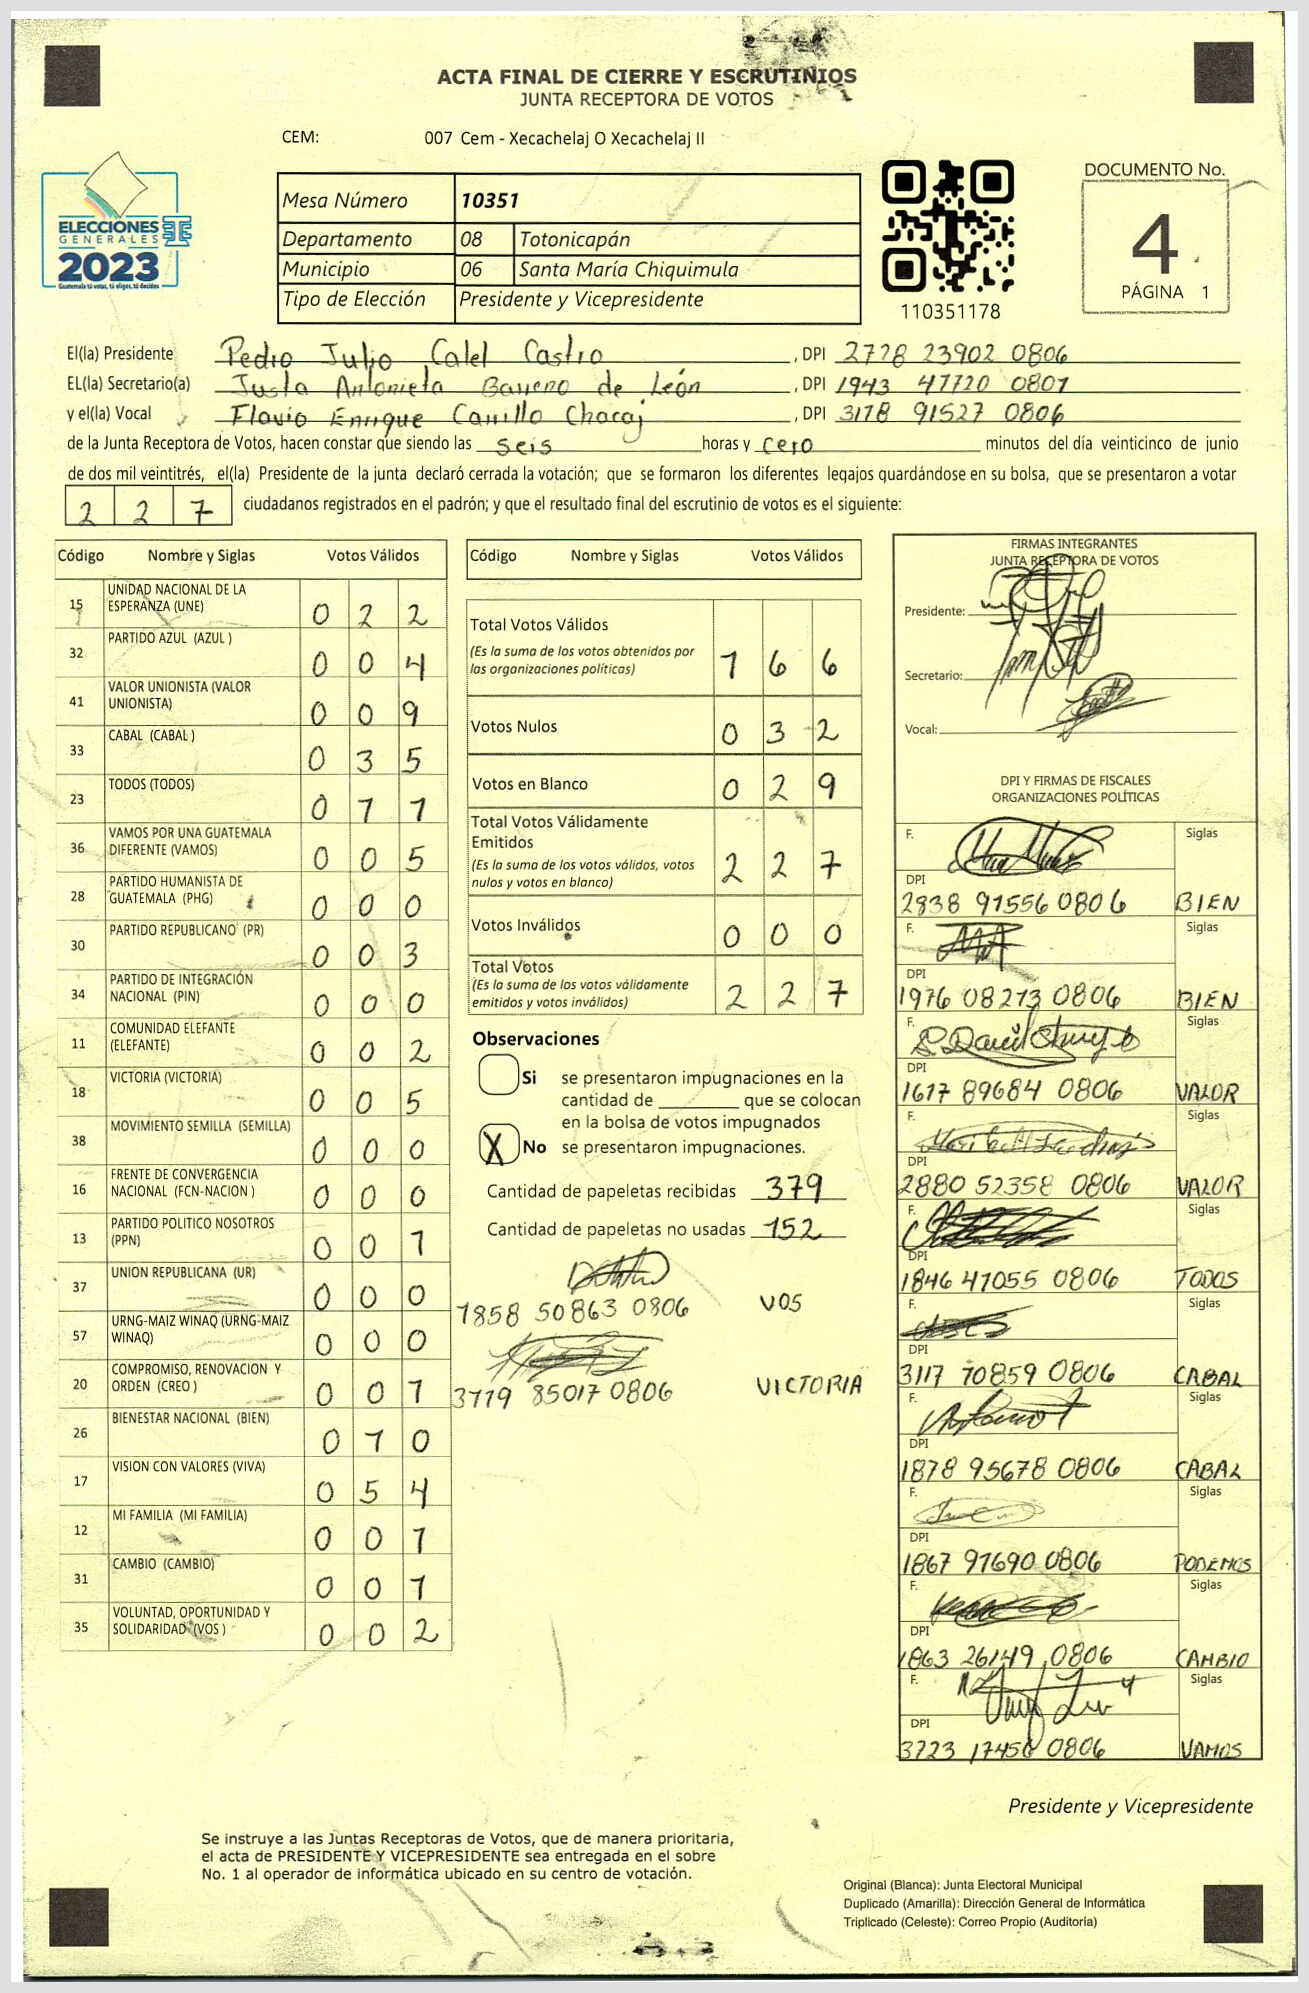 ACTA FINAL DE CIERRE Y ESCRUTINIOS
JUNTA RECEPTORA DE VOTOS
CEM: 007 Cem - Xecachelaj O Xecachelaj II
ELECCIONES
GENERALES
2023
Guatemala tú votas, tú eliges, tú decides
Mesa Número 10351
Departamento 08 Totonicapán
Municipio 06 Santa María Chiquimula
Tipo de Elección Presidente y Vicepresidente
110351178
DOCUMENTO No.
4
PÁGINA 1
El(la) Presidente Pedro Julio Calel Castro , DPI 2728 23902 0806
EL(la) Secretario(a) Justa Antonieta Barreno de León , DPI 1943 47720 0801
y el(la) Vocal Flavio Enrique Carrillo Chacaj , DPI 3178 91527 0806
de la Junta Receptora de Votos, hacen constar que siendo las seis horas y cero minutos del día veinticinco de junio
de dos mil veintitrés, el(la) Presidente de la junta declaró cerrada la votación; que se formaron los diferentes legajos guardándose en su bolsa, que se presentaron a votar
2 2 7 ciudadanos registrados en el padrón; y que el resultado final del escrutinio de votos es el siguiente:
Código Nombre y Siglas Votos Válidos
15 UNIDAD NACIONAL DE LA ESPERANZA (UNE) 0 2 2
32 PARTIDO AZUL (AZUL ) 0 0 4
41 VALOR UNIONISTA (VALOR UNIONISTA) 0 0 9
33 CABAL (CABAL ) 0 3 5
23 TODOS (TODOS) 0 1 1
36 VAMOS POR UNA GUATEMALA DIFERENTE (VAMOS) 0 0 5
28 PARTIDO HUMANISTA DE GUATEMALA (PHG) 0 0 0
30 PARTIDO REPUBLICANO (PR) 0 0 3
34 PARTIDO DE INTEGRACIÓN NACIONAL (PIN) 0 0 0
11 COMUNIDAD ELEFANTE (ELEFANTE) 0 0 2
18 VICTORIA (VICTORIA) 0 0 5
38 MOVIMIENTO SEMILLA (SEMILLA) 0 0 0
16 FRENTE DE CONVERGENCIA NACIONAL (FCN-NACION ) 0 0 0
13 PARTIDO POLITICO NOSOTROS (PPN) 0 0 1
37 UNION REPUBLICANA (UR) 0 0 0
57 URNG-MAIZ WINAQ (URNG-MAIZ WINAQ) 0 0 0
20 COMPROMISO, RENOVACION Y ORDEN (CREO ) 0 0 1
26 BIENESTAR NACIONAL (BIEN) 0 1 0
17 VISION CON VALORES (VIVA) 0 5 4
12 MI FAMILIA (MI FAMILIA) 0 0 1
31 CAMBIO (CAMBIO) 0 0 1
35 VOLUNTAD, OPORTUNIDAD Y SOLIDARIDAD (VOS ) 0 0 2
Código Nombre y Siglas Votos Válidos
Total Votos Válidos
(Es la suma de los votos obtenidos por
las organizaciones políticas) 1 6 6
Votos Nulos 0 3 2
Votos en Blanco 0 2 9
Total Votos Válidamente
Emitidos
(Es la suma de los votos válidos, votos
nulos y votos en blanco) 2 2 7
Votos Inválidos 0 0 0
Total Votos
(Es la suma de los votos válidamente
emitidos y votos inválidos) 2 2 7
Observaciones
Si se presentaron impugnaciones en la
cantidad de ________ que se colocan
en la bolsa de votos impugnados
X No se presentaron impugnaciones.
Cantidad de papeletas recibidas 379
Cantidad de papeletas no usadas 152
1858 50863 0806 VOS
3119 85017 0806 VICTORIA
FIRMAS INTEGRANTES
JUNTA RECEPTORA DE VOTOS
Presidente:
Secretario:
Vocal:
DPI Y FIRMAS DE FISCALES
ORGANIZACIONES POLÍTICAS
F. Siglas
DPI
2838 91556 0806 BIEN
F. Siglas
DPI
1976 08273 0806 BIEN
F. Siglas
DPI
1617 89684 0806 VALOR
F. Siglas
DPI
2880 52358 0806 VALOR
F. Siglas
DPI
1846 47055 0806 TODOS
F. Siglas
DPI
3117 70859 0806 CABAL
F. Siglas
DPI
1878 95678 0806 CABAL
F. Siglas
DPI
1867 97690 0806 PODEMOS
F. Siglas
DPI
1863 26149 0806 CAMBIO
F. Siglas
DPI
3723 17456 0806 VAMOS
Presidente y Vicepresidente
Se instruye a las Juntas Receptoras de Votos, que de manera prioritaria,
el acta de PRESIDENTE Y VICEPRESIDENTE sea entregada en el sobre
No. 1 al operador de informática ubicado en su centro de votación.
Original (Blanca): Junta Electoral Municipal
Duplicado (Amarilla): Dirección General de Informática
Triplicado (Celeste): Correo Propio (Auditoría)